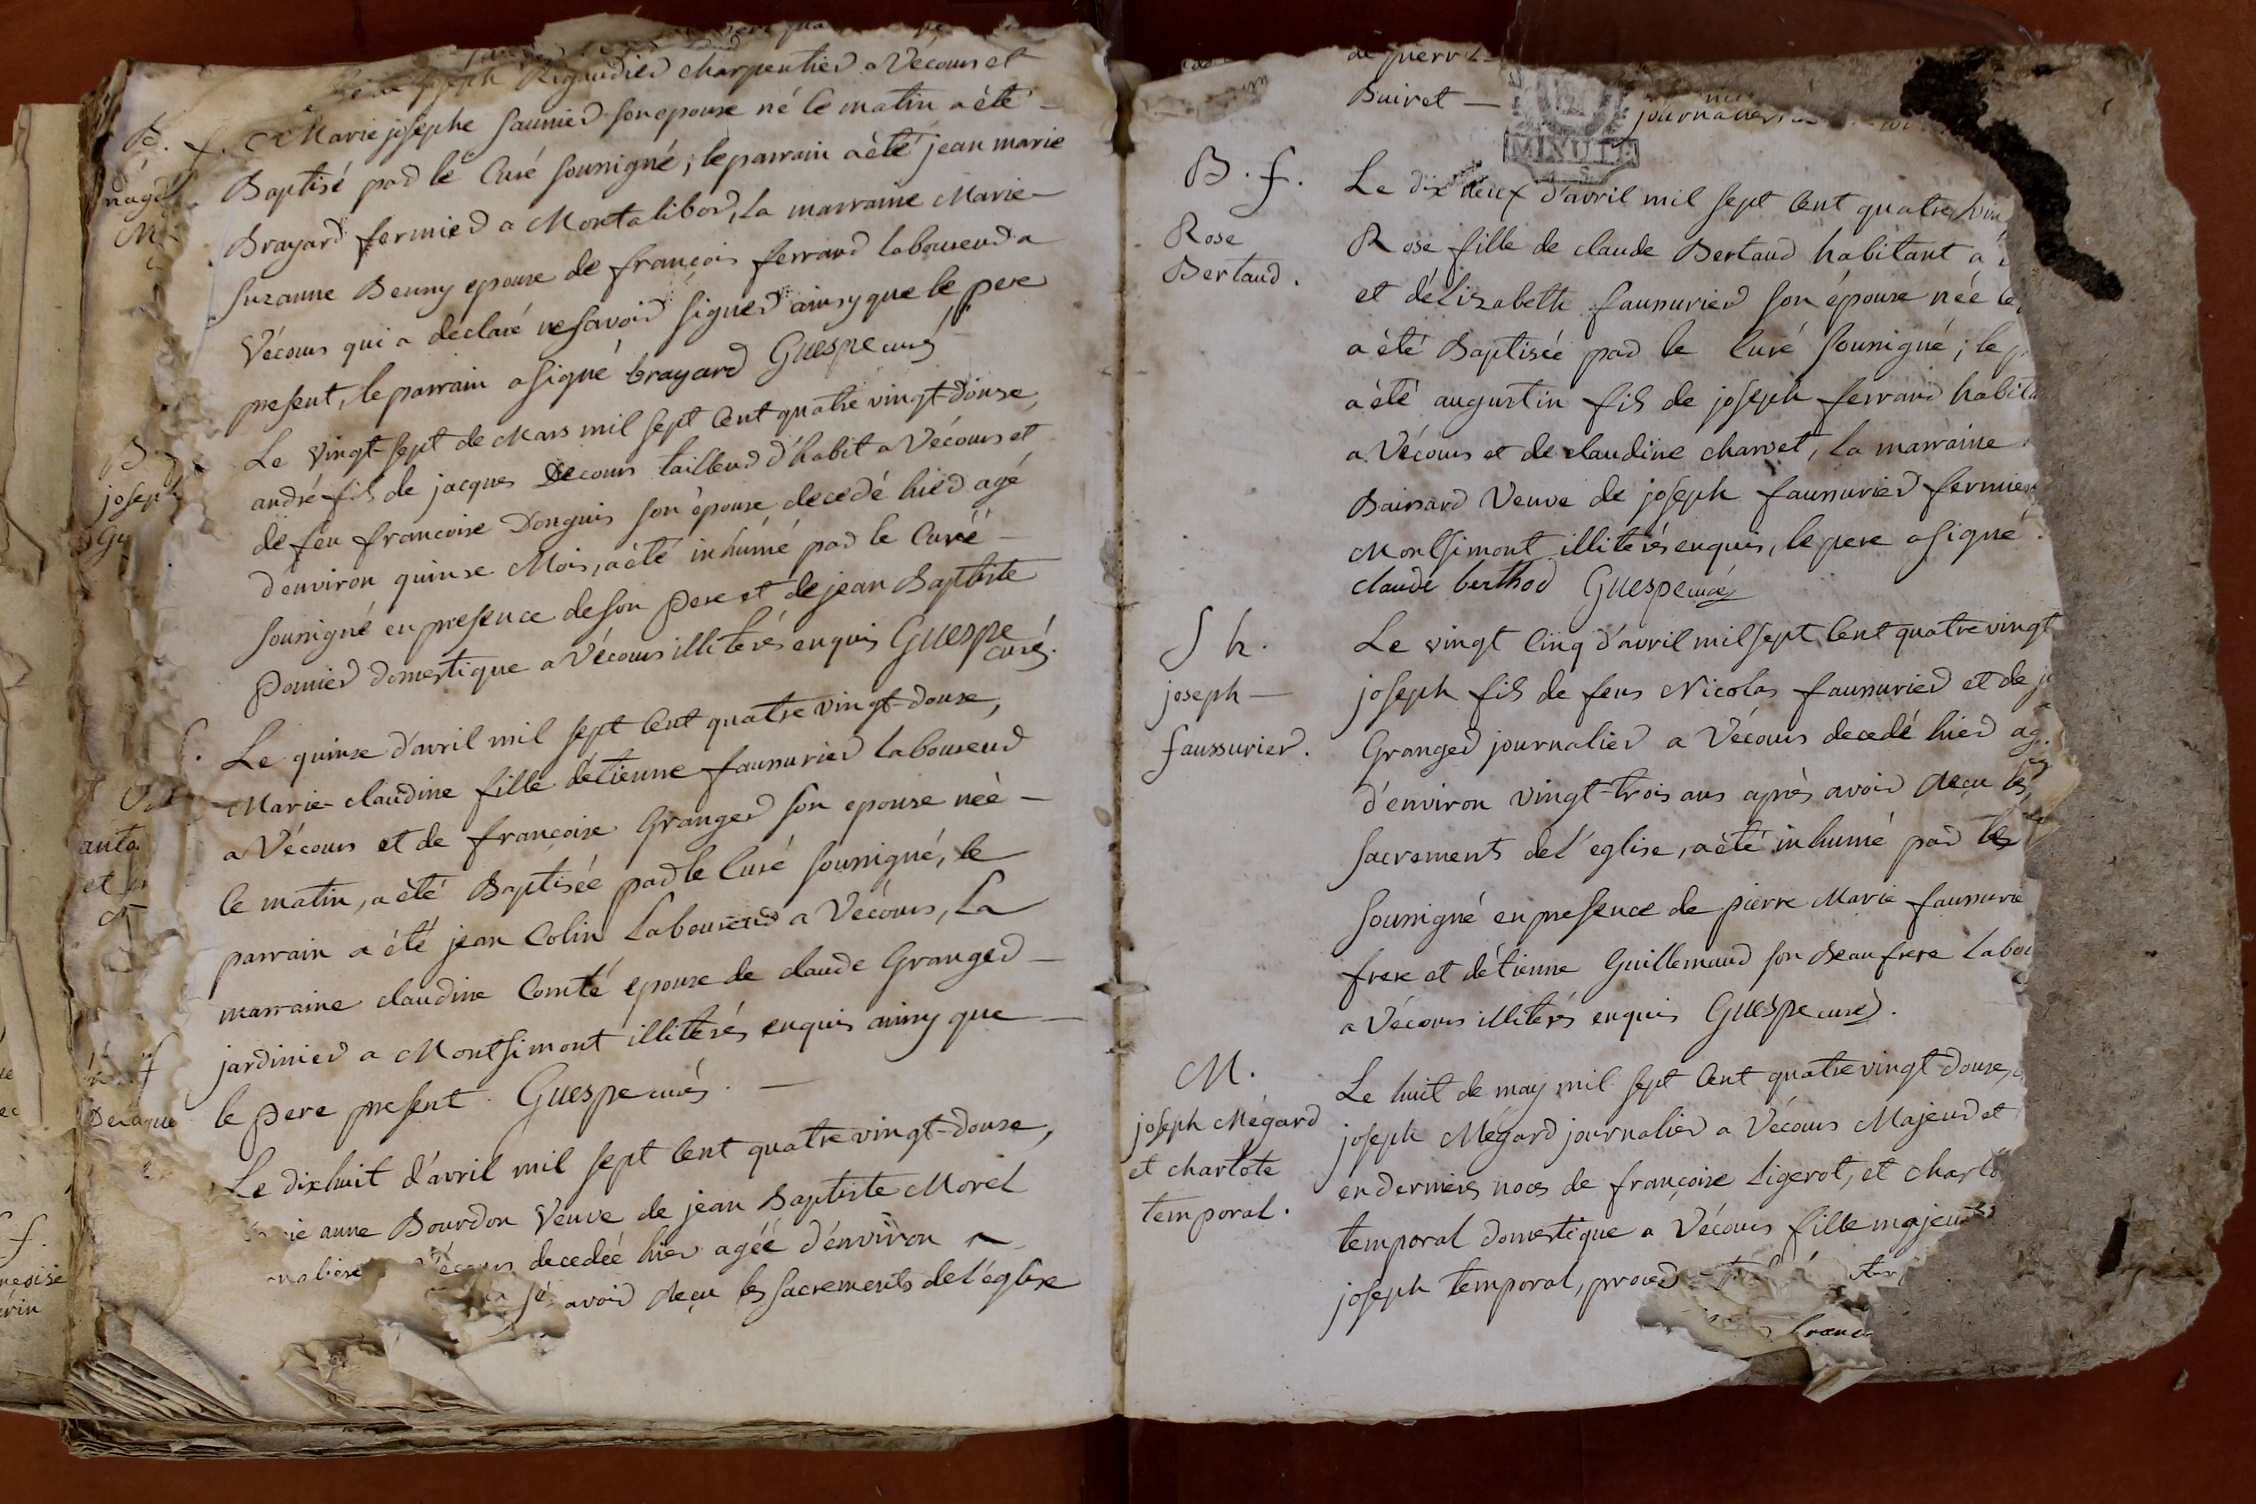 joseph Rigaudier charpentier a Vécours et
B. f.
Marie josephe saunier son epouse né le matin a été
Baptisé par le Curé soussigné; le parrain a été jean marie
Brayard fermier a Montalibor, la marraine Marie
suzanne Benny epouse de françois ferrand laboureur a
Vécours qui a déclaré ne savoir signer ainsy que le pere
present, le parrain a signé brayard Guespe curé
Le vingt-sept de Mars mil sept Cent quatre vingt-douse,
joseph
andré fils de jacques Decours tailleur d'habit a Vécours et
de feu francoise Donguis son épouse decedé hier agé
d'environ quinse Mois, a été inhumé par le Curé
soussigné en presence de son Pere et de jean Baptiste
Pannier domestique a Vécours illiterés enquis Guespe
curé.
Le quinse d'avril mil sept Cent quatre vingt-douse,
Marie-claudine fille d'étienne faussurier laboureur
a Vécours et de françoise Granger son epouse née
le matin, a été Baptisée par le Curé soussigné, le
parrain a été jean Colin Laboureur a Vécours, La
marraine claudine Comté epouse de claude Granger
jardinier a Montsimont illiterés enquis ainsy que
le Pere present. Guespe curé.
Le dixhuit d'avril mil sept Cent quatre vingt-douse,
anne Bourdon Veuve de jean Baptiste Morel
decedée hier agée d'environ
avoir reçu les sacrements de l'église
Buiret
journalier
MINUTE
B. f.
Rose
Bertaud.
Le dix neuf d'avril mil sept Cent quatre vin
Rose fille de claude Bertaud habitant a
et d'élizabeth faussurier son épouse née le
a été Baptisée par le Curé soussigné; le p
a été augustin fils de joseph ferrand habita
a Vécours et de claudine charvet, la marraine
Bainard Veuve de joseph faussurier fermier
Montsimont illiterés enquis, le pere a signé.
claude berthod Guespe curé
S h.
joseph
faussurier.
Le vingt Cinq d'avril mil sept Cent quatre vingt
joseph fils de feus Nicolas faussurier et de j
Granger journalier a Vécours decedé hier ag
d'environ vingt-trois ans après avoir reçu les
sacrements de l'eglise, a été inhumé par le
soussigné en presence de pierre Marie faussurie
frere et d'étienne Guillemaud son Beaufrere Labou
a Vécours illiterés enquis Guespe curé.
M.
joseph Mégard
et charlote
temporal.
Le huit de may mil sept Cent quatre vingt-douse,
joseph Mégard journalier a Vécours Majeur et
en dernieres noces de françoise Ligerot, et charlo
temporal domestique a Vécours fille majeu
joseph temporal, proced